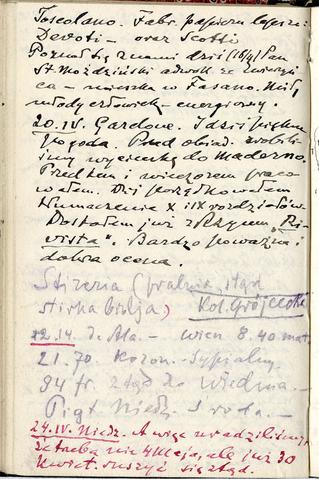 Toscolano. Fabr. papieru
Devoti – oraz Scotti
Poznał się z nami dziś (16/4) Pan
St. Moździński adwok. ze
ca – mieszka w Fasano. Miły,
młody człowiek – energiczny.
20. IV. Gardone. I dziś piękna
pogoda. Przed obiad. zrobili-
śmy wycieczkę do Maderno.
Przedtem i wieczorem praco-
wałem. Dziś porządkowałem
tłumaczenie X i IX rozdziałów.
Dostałem już z Rzymu „Ri-
vista". Bardzo poważna i
dobra ocena.
Stirena (pralnia, stąd
stirka bielja) Kol. Grójecka
12.14. d. Ala. – Wien 8.40 mat.
21.70. Koron. – Sypialny.
84 fr. stąd do Wiednia. –
Piąt. Niedz. Środa. –
24. IV. Niedz. A więc uradziliśmy,
że trzeba nie 4 Maja, ale już 30
Kwiet. ruszyć się stąd.